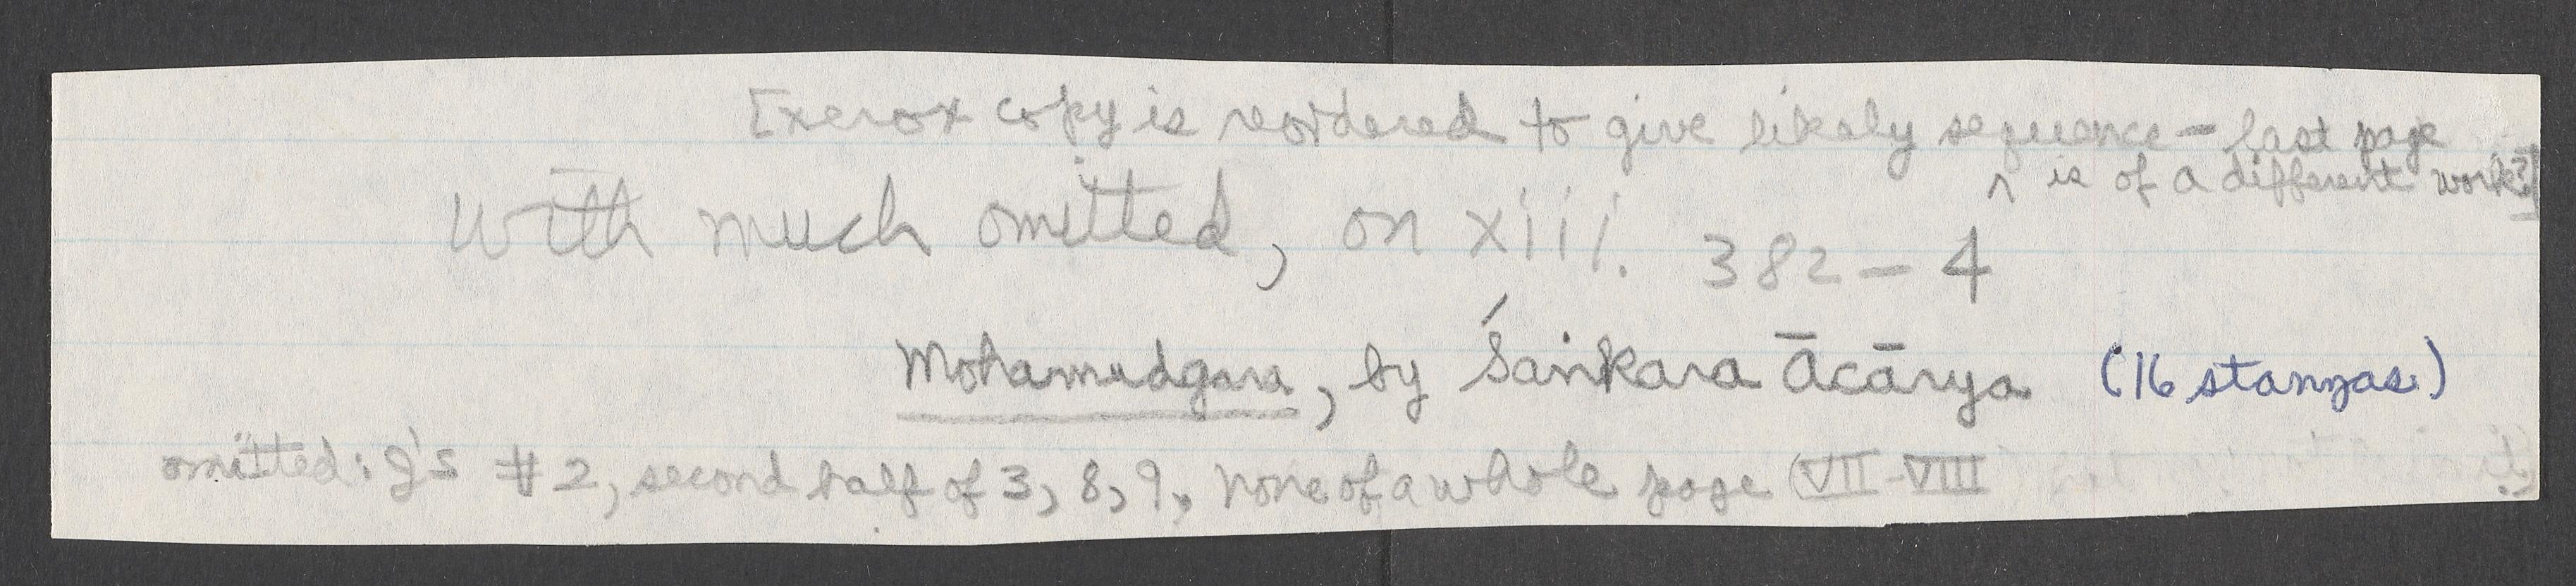 [xerox copy is reordered to give likely sequence – last page
^ is of a different work?]
with much omitted, on xiii. 382–4
Mohamudgara, by Śaṅkara Ācārya (16 stanzas)
omitted: J's #2, second half of 3, 8, 9, none of a whole page (VII–VIII